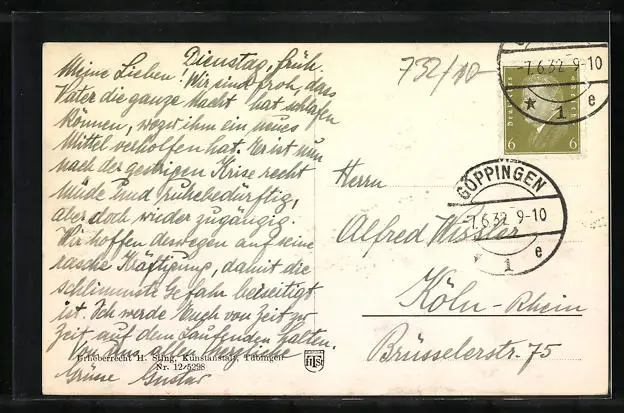 Dienstag, früh.
Meine Lieben! Wir sind froh, dass
Vater die ganze Nacht hat schlafen
können, wozu ihm ein neues
Mittel verholfen hat. Er ist nun
nach der gestrigen Krise recht
müde und ruhebedürftig,
aber doch wieder zugängig.
Wir hoffen deswegen auf seine
rasche Kräftigung, damit die
schlimmste Gefahr beseitigt
ist. Ich werde Euch von Zeit zu
Zeit auf dem Laufenden halten.
Von uns allen herzliche
Grüsse Gustav
Urheberrecht H. Sting, Kunstanstalt, Tübingen
Nr. 12/5298
HST
732/10
Deutsches
6 6
-7.6.32 9-10
* 1 e
GÖPPINGEN
-7.6.32 9-10
* 1 e
Herrn
Alfred Wissler
Köln-Rhein
Brüsselerstr. 75